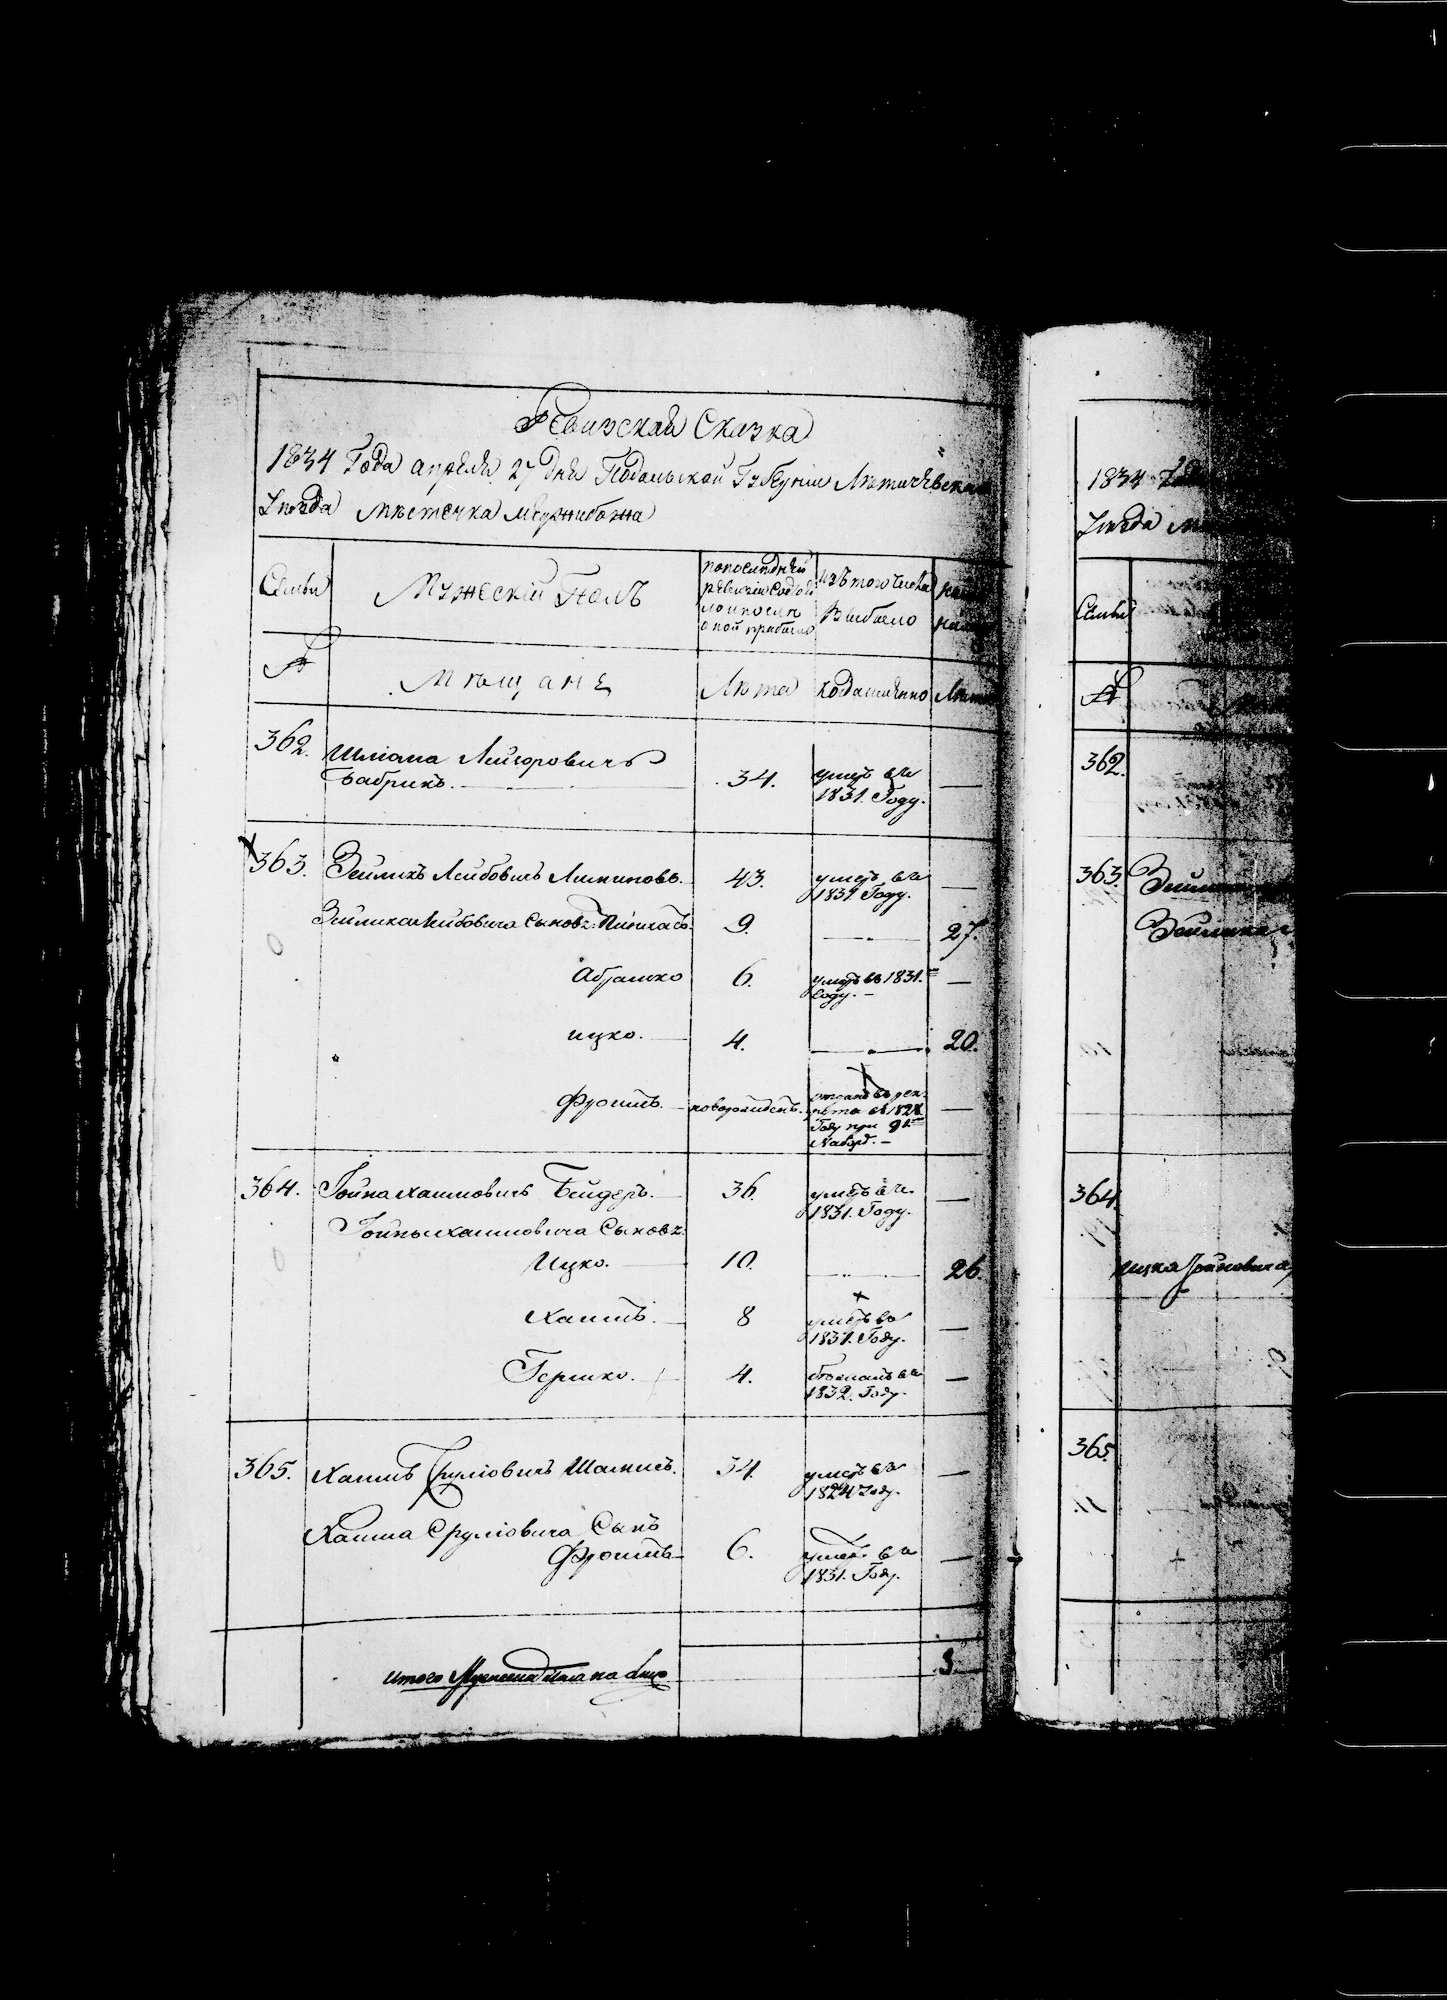 Ревизская Сказка
1834 Года апреля 27 дня Подольской Губернии Летичевскаго
Уезда местечка Меджибожа
Семьи
Мужескій Полъ
по последней ревизіи состояло и после оной прибыло
изъ того числа выбыло
№
Мещане
Лета
когда имянно
Лета
362. Шліома Лейзоровичъ
Бабрикъ. 34. умеръ въ 1831. Году. —
363. Зейликъ Лейбовичъ 43. умеръ въ 1831. Году. —
Зейлика Лейбовича Сыновья: Пинхасъ. 9. —„— 27.
Абрамко 6. умеръ въ 1831. Году. — —
ицко. 4. —„— 20.
Фроимъ. новорожденъ. отданъ въ рекруты въ 1828 Году при 91 Наборе. — —
364. Іойна Хаимовичъ Бейдеръ. 36. умеръ въ 1831. Году. —
Іойны Хаимовича Сыновья:
Ицко. 10. —„— 26.
Хаимъ. 8 умеръ въ 1831. Году. —
Гершко. 4. въ 1832. Году. —
365. Хаимъ Сруліовичъ 34. умеръ въ 1824 Году. —
Хаима Сруліовича Сынъ
Фроимъ 6. умеръ въ 1831. Году. —
итого Мужеска пола на лицо 3.
1834
Уезда
Семьи
№
362.
363. Зейлика
Зейлика
364.
ицка Іойновича
365.